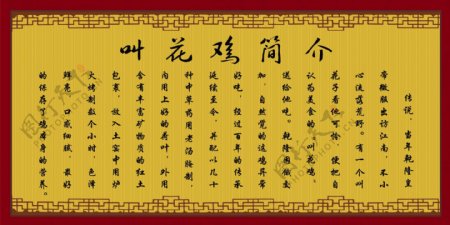 叫花鸡简介
传说，当年乾隆皇
带微服出访江南，不小
心流落荒野。有一个叫
花子看他可怜，便把自
认为美食的“叫花鸡”
送给他吃。乾隆困饿交
加，自然觉的这鸡异常
好吃。经过百年的传承
延续至今，并配以几十
种中草药用老汤腌制，
内用上好的荷叶，外用
含有丰富矿物质的红土
包裹，放入土窑中用炉
火烤制数个小时，色泽
鲜亮，口感细腻，最好
的保存了鸡本身的营养。